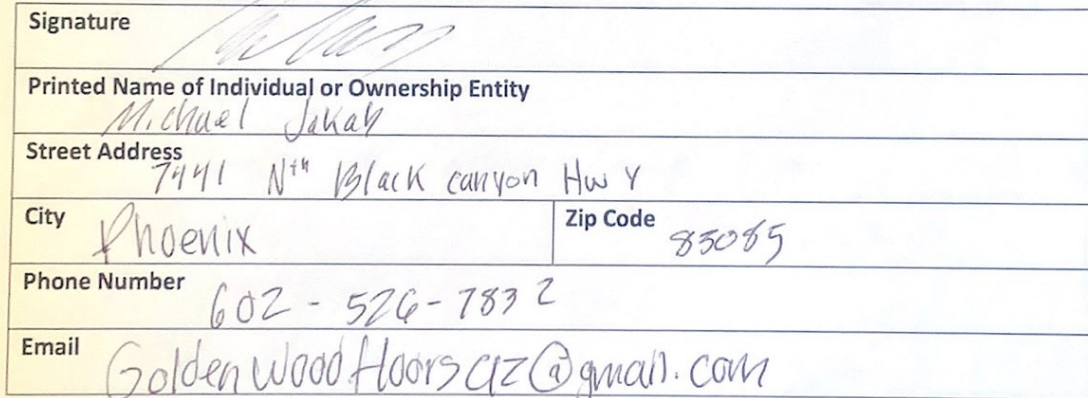 Signature
Printed Name of Individual or Ownership Entity
Michael Jakab
Street Address
7441 Nth Black canyon Hwy
City Phoenix Zip Code 85085
Phone Number 602-526-7832
Email Goldenwoodfloorsaz@gmail.com